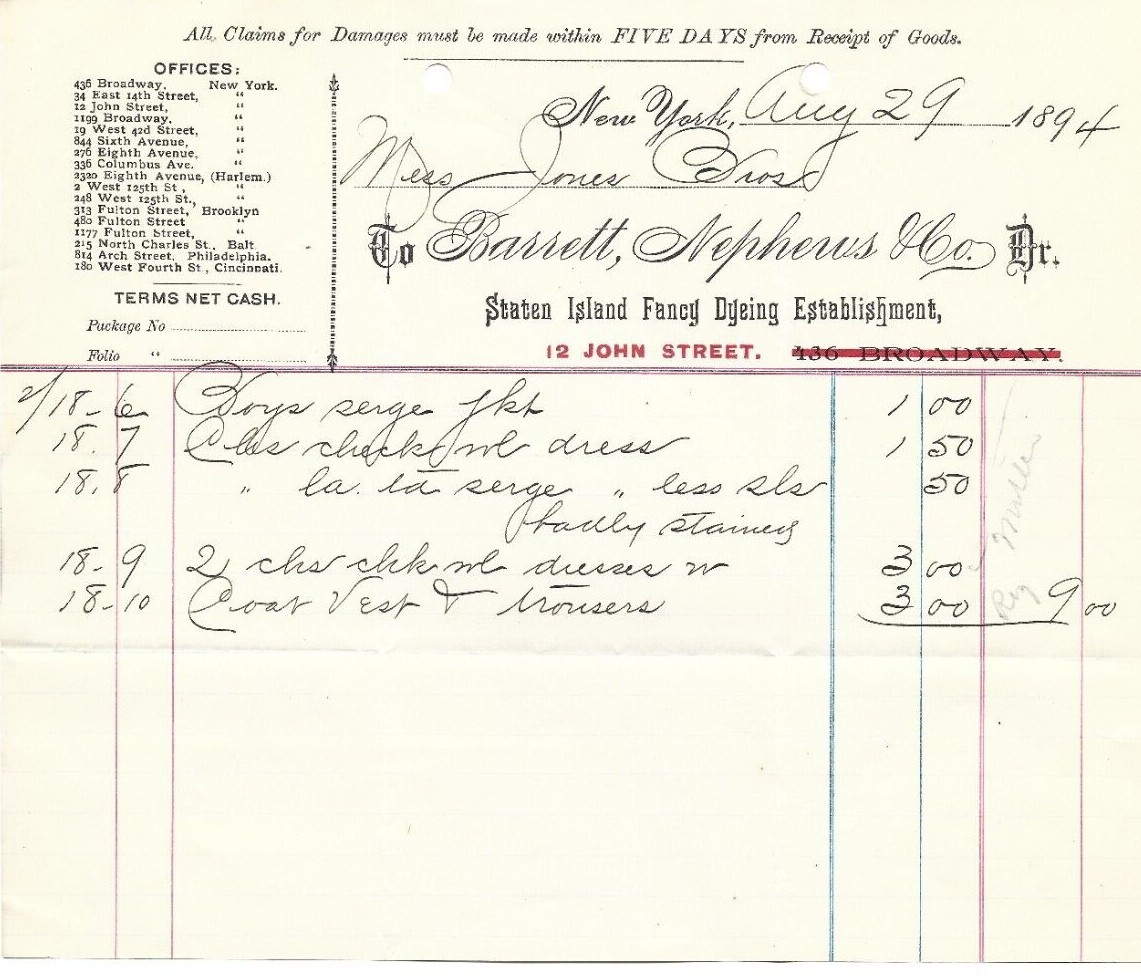 All Claims for Damages must be made within FIVE DAYS from Receipt of Goods.
OFFICES:
436 Broadway, New York.
34 East 14th Street, "
12 John Street, "
1199 Broadway, "
19 West 42d Street, "
844 Sixth Avenue, "
276 Eighth Avenue, "
336 Columbus Ave. "
2320 Eighth Avenue, (Harlem.)
2 West 125th St., "
248 West 125th St., "
313 Fulton Street, Brooklyn
480 Fulton Street "
1177 Fulton Street, "
215 North Charles St., Balt.
814 Arch Street, Philadelphia.
180 West Fourth St., Cincinnati.
TERMS NET CASH.
Package No
Folio "
New York, Aug 29 1894
Mess Jones Bros
To Barrett, Nephews & Co. Dr.
Staten Island Fancy Dyeing Establishment,
12 JOHN STREET. 436 BROADWAY.
18-6 Boys serge jkt 1 00
18.7 Chs check wl dress 1 50
18.8 " la. td serge " less sls 50
badly stained
18-9 2 chs chk wl dresses w 3 00
18-10 Coat Vest & trousers 3 00 9 00